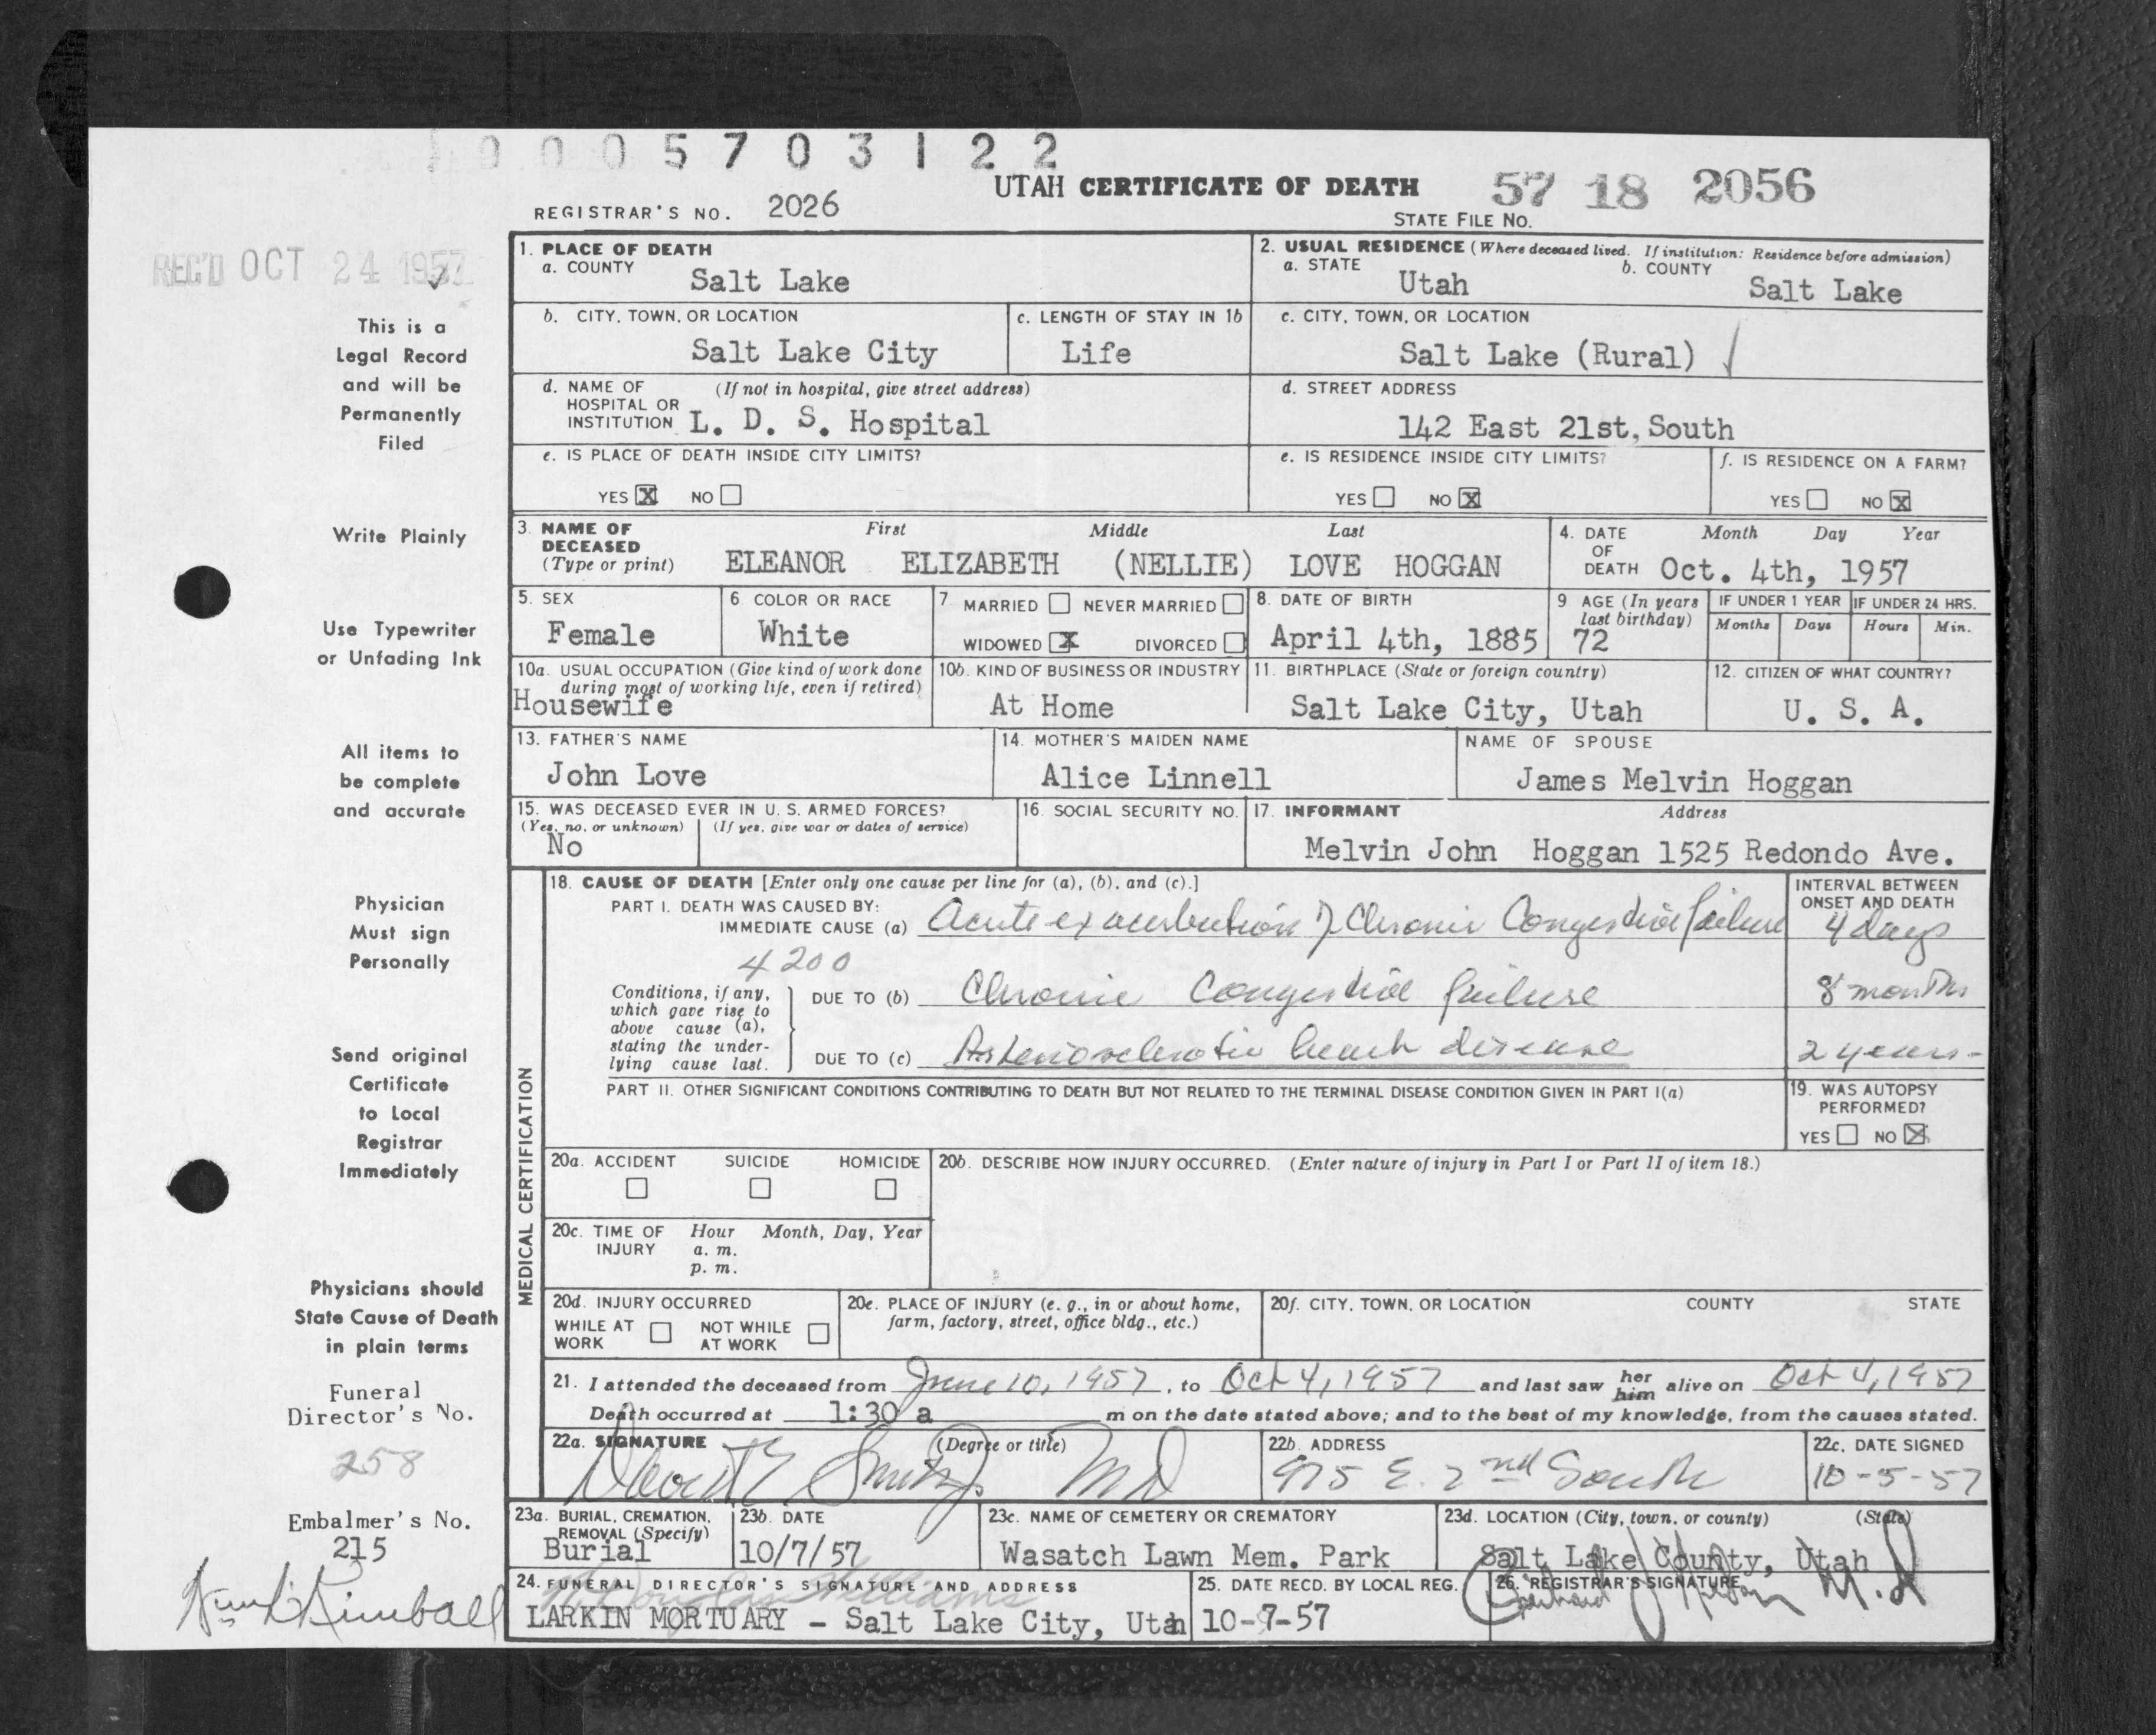 0005703122
UTAH CERTIFICATE OF DEATH
57 18 2056
REGISTRAR'S NO. 2026
STATE FILE NO.
REC'D OCT 24 1957
This is a
Legal Record
and will be
Permanently
Filed
Write Plainly
Use Typewriter
or Unfading Ink
All items to
be complete
and accurate
Physician
Must sign
Personally
Send original
Certificate
to Local
Registrar
Immediately
Physicians should
State Cause of Death
in plain terms
Funeral
Director's No.
258
Embalmer's No.
215
Kimball
1. PLACE OF DEATH
a. COUNTY Salt Lake
2. USUAL RESIDENCE (Where deceased lived. If institution: Residence before admission)
a. STATE Utah b. COUNTY Salt Lake
b. CITY, TOWN, OR LOCATION Salt Lake City
c. LENGTH OF STAY IN 1b Life
c. CITY, TOWN, OR LOCATION Salt Lake (Rural)
d. NAME OF HOSPITAL OR INSTITUTION (If not in hospital, give street address) L. D. S. Hospital
d. STREET ADDRESS 142 East 21st, South
e. IS PLACE OF DEATH INSIDE CITY LIMITS?
YES X NO
e. IS RESIDENCE INSIDE CITY LIMITS?
YES NO X
f. IS RESIDENCE ON A FARM?
YES NO X
3. NAME OF DECEASED (Type or print) First Middle Last
ELEANOR ELIZABETH (NELLIE) LOVE HOGGAN
4. DATE OF DEATH Month Day Year
Oct. 4th, 1957
5. SEX Female
6 COLOR OR RACE White
7 MARRIED NEVER MARRIED
WIDOWED X DIVORCED
8. DATE OF BIRTH April 4th, 1885
9 AGE (In years last birthday) 72
IF UNDER 1 YEAR Months Days
IF UNDER 24 HRS. Hours Min.
10a. USUAL OCCUPATION (Give kind of work done during most of working life, even if retired)
Housewife
10b. KIND OF BUSINESS OR INDUSTRY At Home
11. BIRTHPLACE (State or foreign country) Salt Lake City, Utah
12. CITIZEN OF WHAT COUNTRY? U. S. A.
13. FATHER'S NAME John Love
14. MOTHER'S MAIDEN NAME Alice Linnell
NAME OF SPOUSE James Melvin Hoggan
15. WAS DECEASED EVER IN U. S. ARMED FORCES?
(Yes, no, or unknown) (If yes, give war or dates of service)
No
16. SOCIAL SECURITY NO.
17. INFORMANT Address
Melvin John Hoggan 1525 Redondo Ave.
MEDICAL CERTIFICATION
18. CAUSE OF DEATH [Enter only one cause per line for (a), (b), and (c).]
INTERVAL BETWEEN ONSET AND DEATH
PART I. DEATH WAS CAUSED BY:
IMMEDIATE CAUSE (a) Acute exacerbation of Chronic Congestive failure 4 days
4200
Conditions, if any, which gave rise to above cause (a), stating the underlying cause last.
DUE TO (b) Chronic Congestive failure 8 months
DUE TO (c) Arteriosclerotic heart disease 2 years
PART II. OTHER SIGNIFICANT CONDITIONS CONTRIBUTING TO DEATH BUT NOT RELATED TO THE TERMINAL DISEASE CONDITION GIVEN IN PART I(a)
19. WAS AUTOPSY PERFORMED?
YES NO X
20a. ACCIDENT SUICIDE HOMICIDE
20b. DESCRIBE HOW INJURY OCCURRED. (Enter nature of injury in Part I or Part II of item 18.)
20c. TIME OF INJURY Hour Month, Day, Year
a. m.
p. m.
20d. INJURY OCCURRED
WHILE AT WORK NOT WHILE AT WORK
20e. PLACE OF INJURY (e. g., in or about home, farm, factory, street, office bldg., etc.)
20f. CITY, TOWN, OR LOCATION COUNTY STATE
21. I attended the deceased from June 10, 1957, to Oct 4, 1957 and last saw her him alive on Oct 4, 1957
Death occurred at 1:30 a m on the date stated above; and to the best of my knowledge, from the causes stated.
22a. SIGNATURE (Degree or title)
Smith Jr. MD
22b. ADDRESS 975 E. 2nd South
22c. DATE SIGNED 10-5-57
23a. BURIAL, CREMATION, REMOVAL (Specify) Burial
23b. DATE 10/7/57
23c. NAME OF CEMETERY OR CREMATORY Wasatch Lawn Mem. Park
23d. LOCATION (City, town, or county) (State)
Salt Lake County, Utah
24. FUNERAL DIRECTOR'S SIGNATURE AND ADDRESS
Douglas Williams
LARKIN MORTUARY - Salt Lake City, Utah
25. DATE RECD. BY LOCAL REG. 10-7-57
26. REGISTRAR'S SIGNATURE
M.D